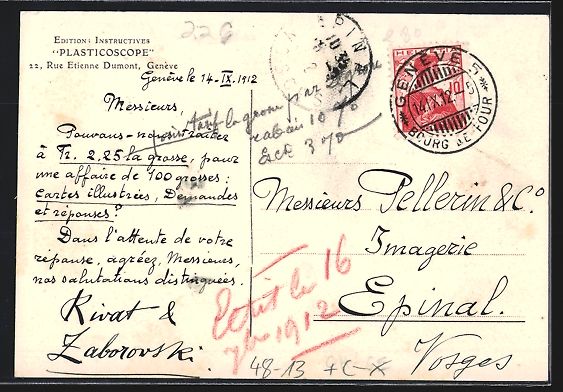 EDITION: INSTRUCTIVES
"PLASTICOSCOPE"
22, Rue Etienne Dumont, Genève
Genève le 14-IX.1912
Messieurs,
Pouvons-nous traiter
à Fr. 2,25 la grosse, pour
une affaire de 100 grosses:
cartes illustrées, Demandes
et réponses?
Dans l'attente de votre
réponse, agréez, Messieurs,
nos salutations distinguées.
Rivat &
Zaborovski
la grosse
rabais 10 %
Esc 3 %
EPINAL
HELVETIA
10
GENÈVE 5
14.IX.12
BOURG DE FOUR
Messieurs Pellerin & Co
Imagerie
Epinal.
Vosges
Ecrit le 16
7bre 1912
48-13 +C-X